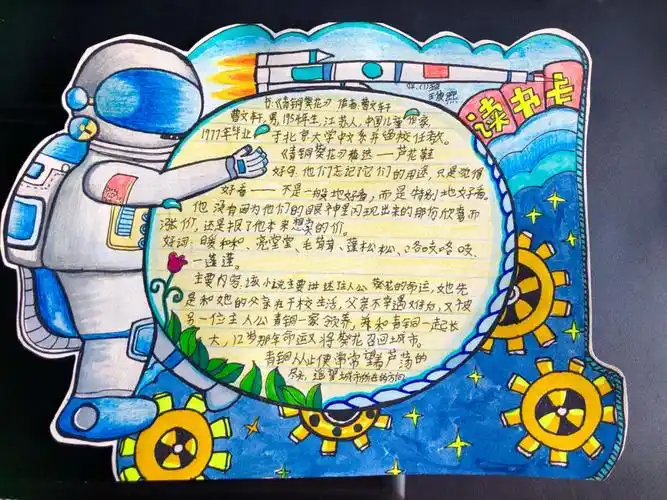 读书卡
书:《青铜葵花》 作者:曹文轩
曹文轩,男,1954年生,江苏人,中国儿童作家,
1977年毕业于北京大学中文系并留校任教。
《青铜葵花》描述——芦花鞋
好句:他们忘记了它们的用途,只是觉得
好看——不是一般地好看,而是特别地好看。
他没有因为他们的眼神里闪现出来的那份欣喜而
涨价,还是报了他本来想卖的价。
好词:暖和和、亮堂堂、毛茸茸、蓬松松、咯咬咯咬、
一蓬蓬。
主要内容:该小说主要讲述主人公葵花的命运,她先
是和她的父亲在干校生活,父亲不幸遇难后,又被
另一位主人公青铜一家领养,并和青铜一起长
大,12岁那年命运又将葵花召回城市。
青铜从此便常常望着芦荡的
尽头,遥望城市所在的方向